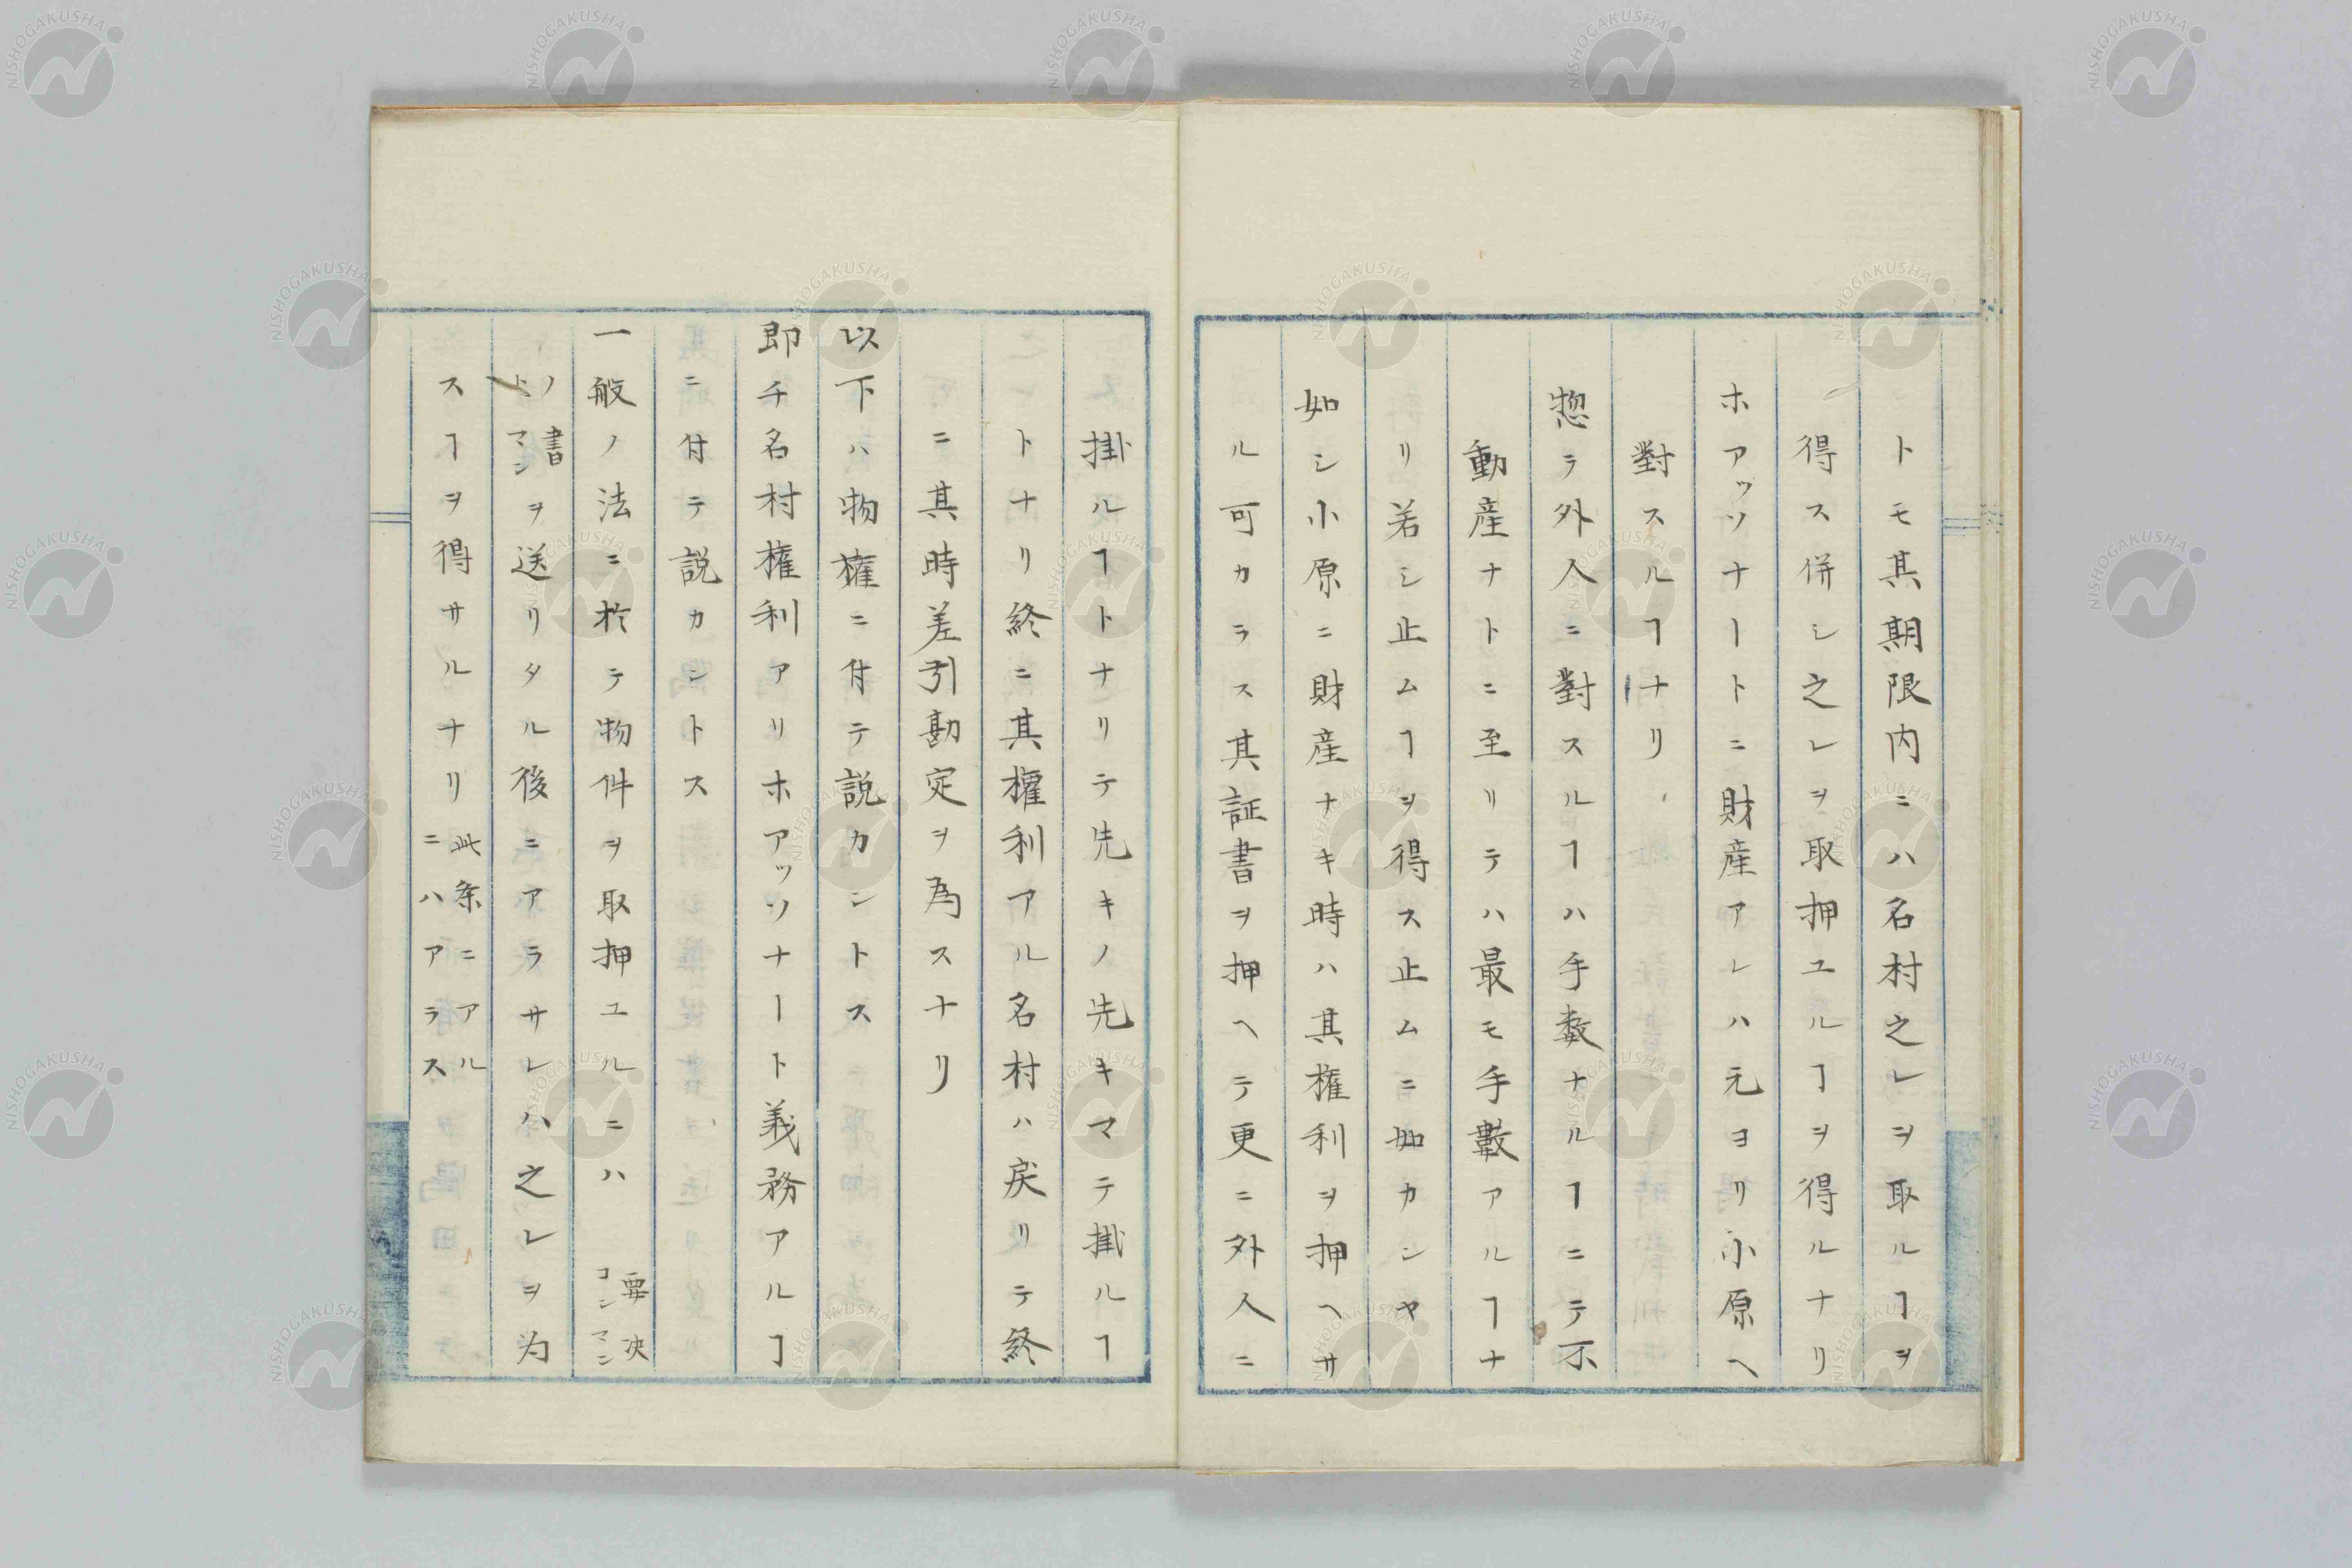 トモ其期限内ニハ名村之レヲ取ルヿヲ
得ス併シ之レヲ取押ユルヿヲ得ルナリ
ホアッソナートニ財産アレハ元ヨリ小原ヘ
對スルヿナリ
惣テ外人ニ對スルヿハ手数ナルヿニテ不
動産ナトニ至リテハ最モ手數アルヿナ
リ若シ止ムヿヲ得ス止ムニ如カンヤ
如シ小原ニ財産ナキ時ハ其権利ヲ押ヘサ
ル可カラス其証書ヲ押ヘテ更ニ外人ニ
掛ルヿトナリテ先キノ先キマテ掛ルヿ
トナリ終ニ其權利アル名村ハ戻リテ終
ニ其時差引勘定ヲ為スナリ
以下ハ物權ニ付テ説カントス
即チ名村権利アリホアッソナート義務アルヿ
ニ付テ説カントス
一般ノ法ニ於テ物件ヲ取押ユルニハ 要決 コンマン
ノ書 トマンヲ送リタル後ニアラサレハ之レヲ为
スヿヲ得サルナリ 此条ニアル ニハアラス
NISHOGAKUSHA